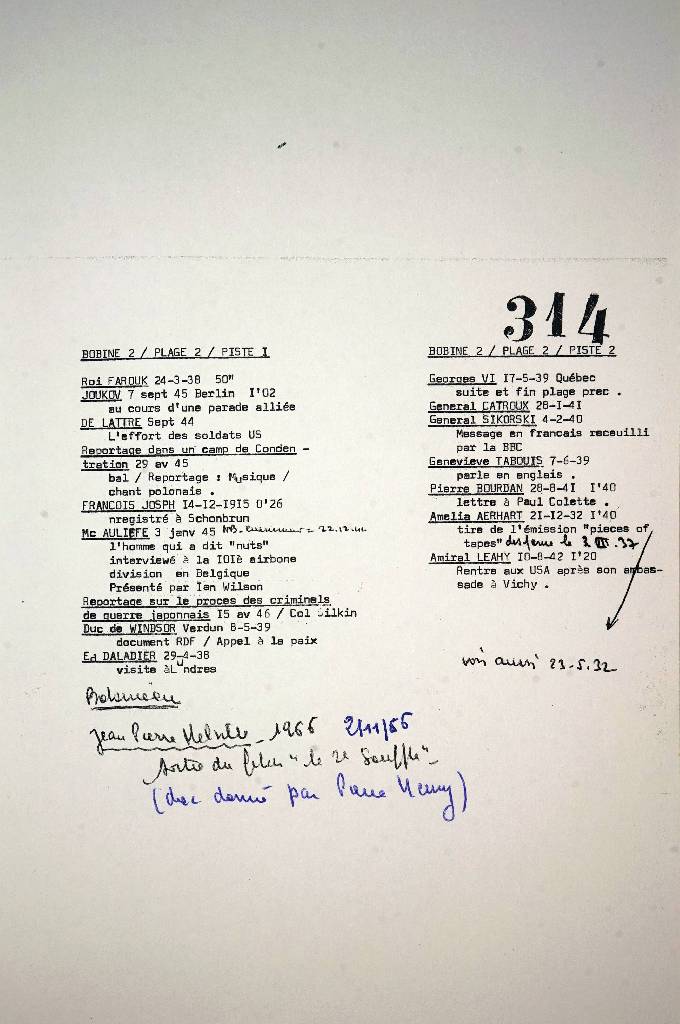 314
BOBINE 2 / PLAGE 2 / PISTE I
Roi FAROUK 24-3-38 50"
JOUKOV 7 sept 45 Berlin I'02
au cours d'une parade alliée
DE LATTRE Sept 44
L'effort des soldats US
Reportage dans un camp de Conden -
tration 29 av 45
bal / Reportage : Musique /
chant polonais .
FRANCOIS JOSPH I4-I2-I9I5 0'26
nregistré à Schonbrun
Mc AULIEFE 3 janv 45 22.12.44
l'homme qui a dit "nuts"
interviewé à la IOIè airbone
division en Belgique
Présenté par Ian Wilson
Reportage sur le proces des criminels
de guerre japonnais I5 av 46 / Col Silkin
Duc de WINDSOR Verdun 8-5-39
document RDF / Appel à la paix
Ed DALADIER 29-4-38
visite àLondres
Jean Pierre Melville - 1966 2/11/66
Sortie du film "le 2e Souffle"
(doc donné par Pierre Henry)
BOBINE 2 / PLAGE 2 / PISTE 2
Georges VI I7-5-39 Québec
suite et fin plage prec .
General CATROUX 28-I-4I
General SIKORSKI 4-2-40
Message en francais receuilli
par la BBC
Genevieve TABOUIS 7-6-39
parle en anglais .
Pierre BOURDAN 28-8-4I I'40
lettre à Paul Colette .
Amelia AERHART 2I-I2-32 I'40
tire de l'émission "pieces of
tapes"
Amiral LEAHY I0-8-42 I'20
Rentre aux USA après son ambas-
sade à Vichy .
voir aussi 23-5.32